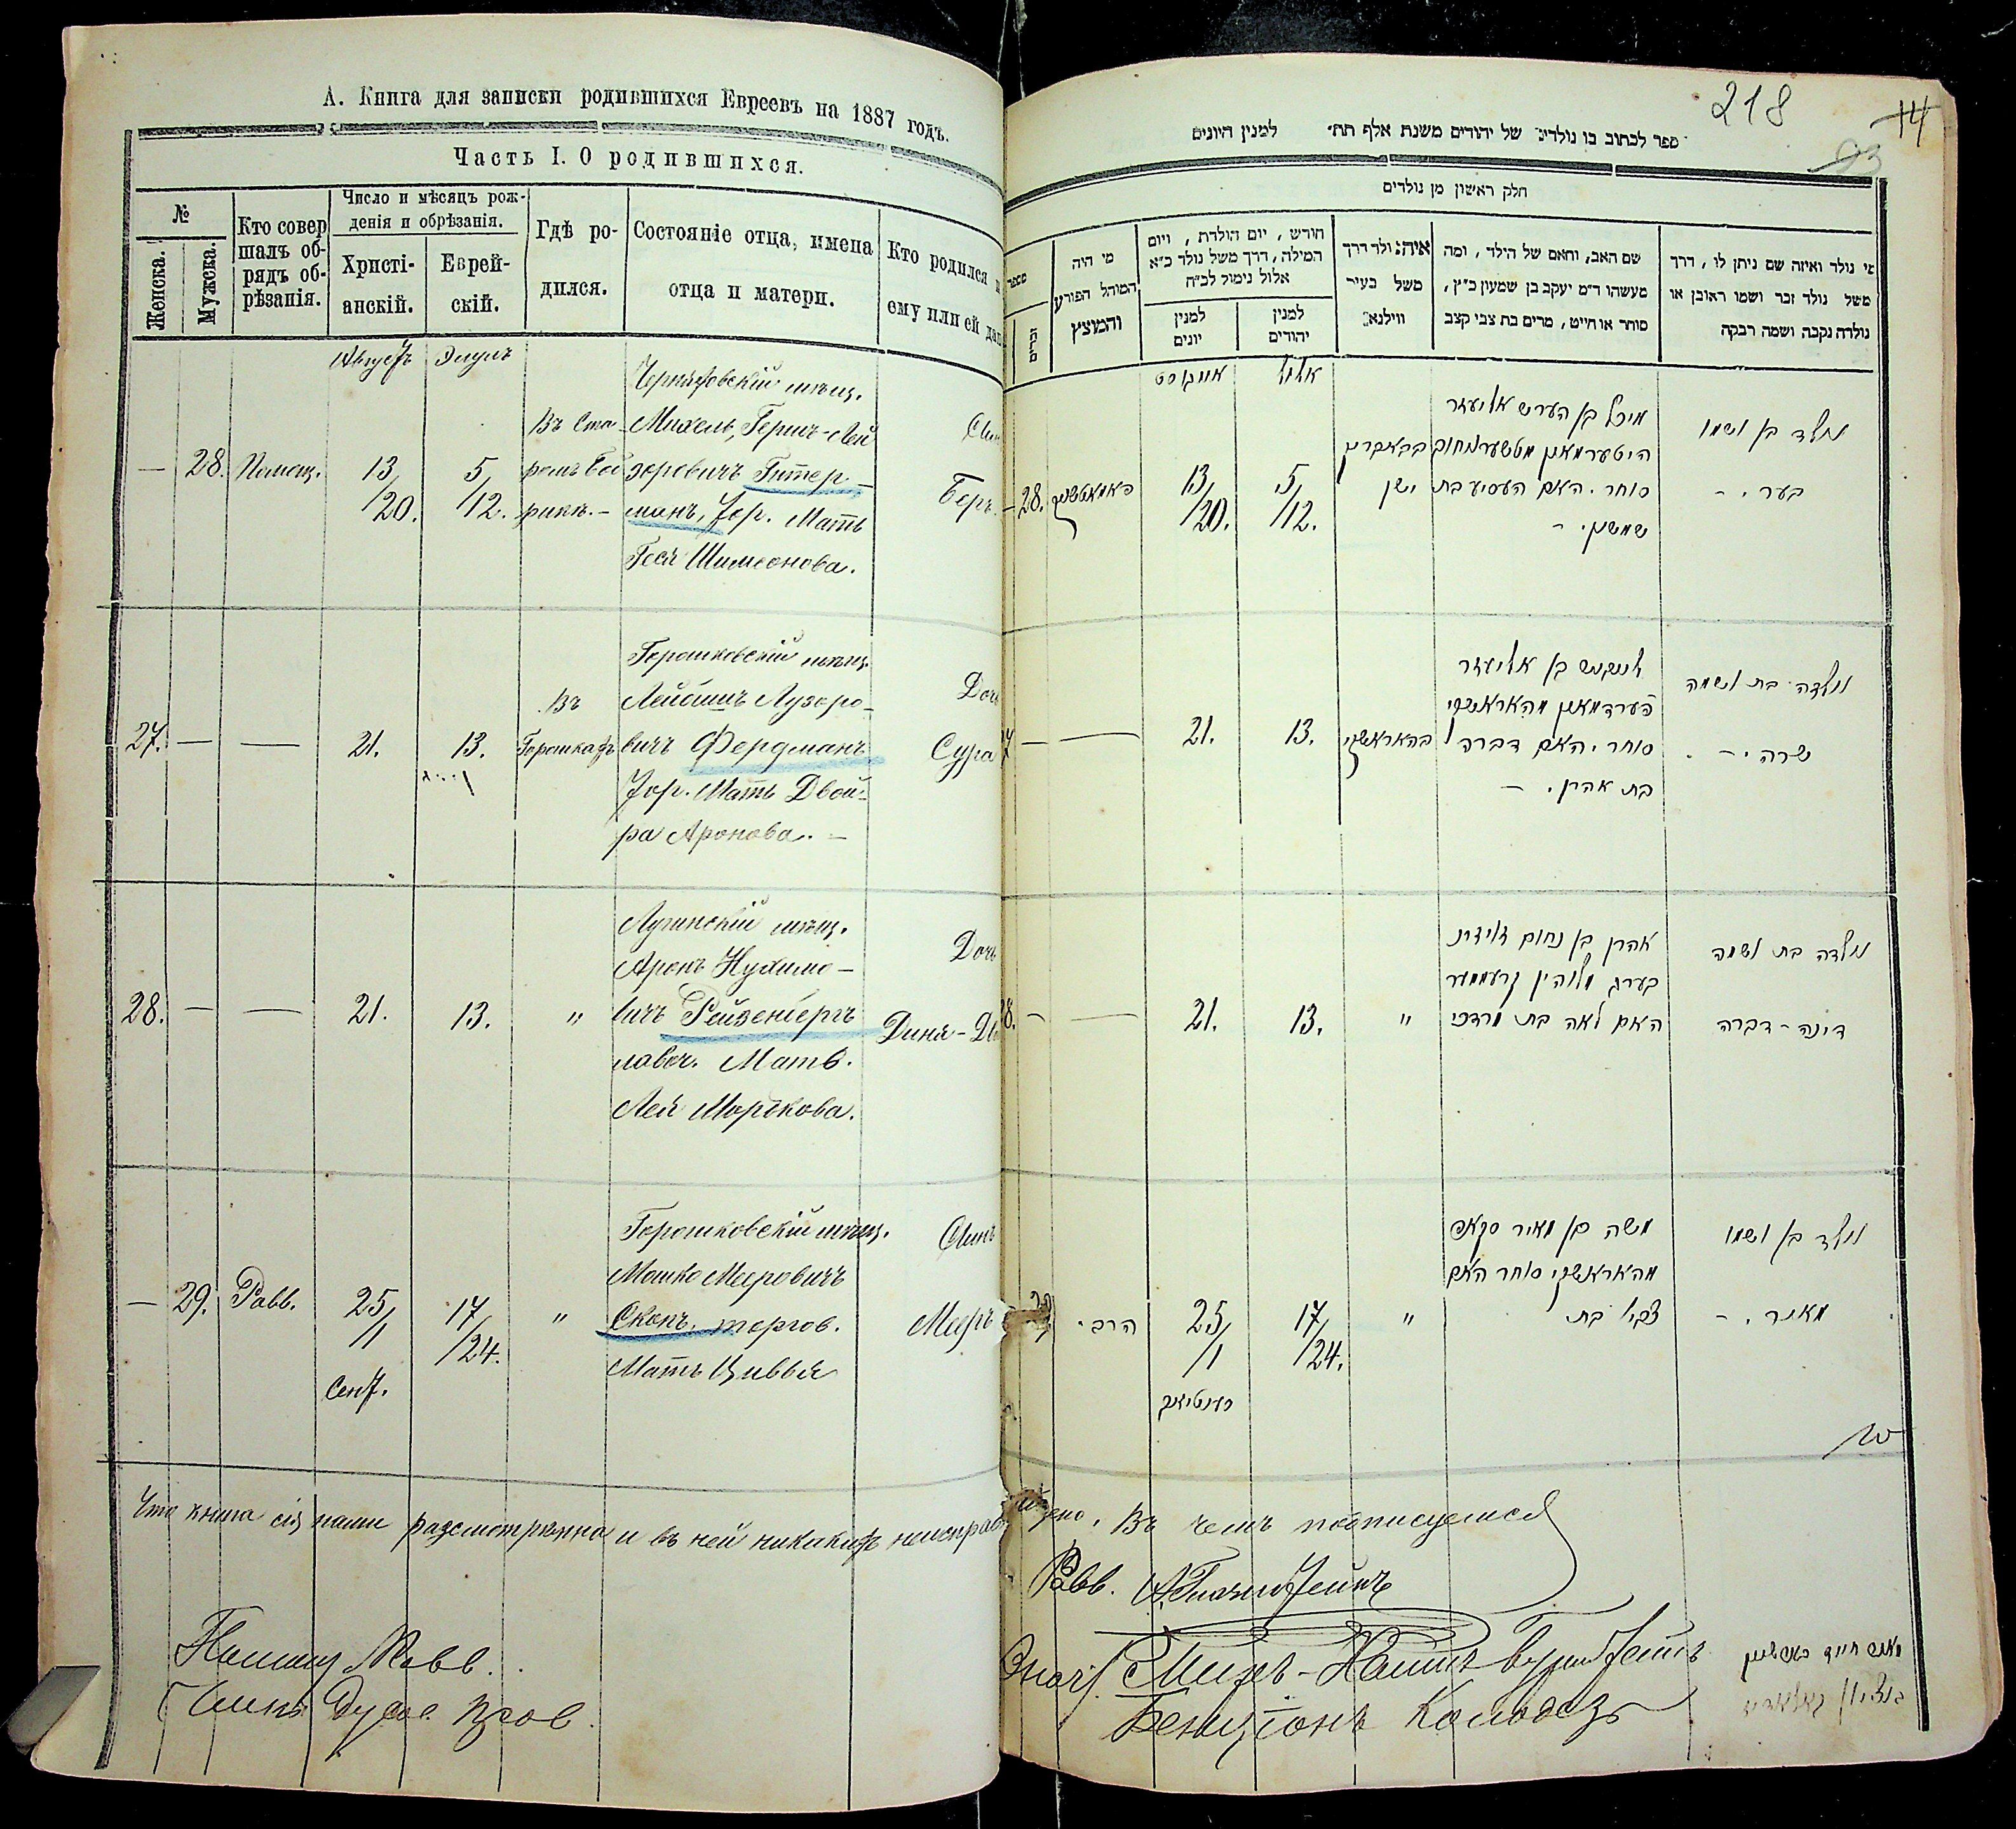 А. Книга для записки родившихся Евреевъ на 1887 годъ.
Часть I. О родившихся.
№
Женска.
Мужска.
Кто совер
шалъ об-
рядъ об-
рѣзанія.
Число и мѣсяцъ рож-
денія и обрѣзанія.
Христі-
анскій.
Еврей-
скій.
Гдѣ ро-
дился.
Состояніе отца, имена
отца и матери.
Кто родился и
ему или ей дан
Августъ Элулъ
— 28. Помощ. 13/20. 5/12.
Въ Ста-
ромъ Бо
рикѣ. –
мѣщ.
Михель, Гершъ-Лей
зоровичъ Гитер-
манъ, тор. Мать
Геся Шимсонова.
Сын
Беръ.
27. — — 21. 13.
Въ
Горошкахъ
Горошковскій мѣщ.
Лейбишъ Лузоро-
вичъ Фердманъ
тор. Мать Двой-
ра Аронова. –
Доч
Сура
28. — — 21. 13. "
Лугинскій мѣщ.
Аронъ Нухимо-
вичъ Рейзенбергъ
лавоч. Мать.
Лея Мортkова.
Дочь
Дина-Дв
— 29. Равв. 25/1 17/24. "
Сент.
Горошковскій мѣщ.
Мошко Меровичъ
Скопъ. торгов.
Мать Цивья
Сынъ
Мееръ
Что книга сія нами разсмотрѣнна и въ ней никакихъ неисправ
Помощ. Равв.
218
14
93
ספר לכתוב בו נולדים של יהודים משנת אלף תת׳ למנין היונים
חלק ראשון מן נולדים
מספר
זכרים
מי היה
המוהל הפורע
והמוצץ
חודש, יום הולדת, ויום
המילה, דרך משל נולד כ״א
אלול נימול לכ״ח
למנין
יונים
למנין
יהודים
איה נולד דרך
משל בעיר
ווילנא
שם האב, והאם של הילד, ומה
מעשהו ד״מ יעקב בן שמעון כ״ץ,
סוחר או חייט, מרים בת צבי קצב
מי נולד ואיזה שם ניתן לו, דרך
משל נולד זכר ושמו ראובן או
נולדה נקבה ושמה רבקה
אויגוסט אלול
28. 13/20. 5/12.
ישן
מיכל בן הערש אליעזר
סוחר. האם העסיע בת
שמשון. -
נולד בן ושמו
בער. -
27 — — 21. 13.
בהאראשקי
לייבוש בן אליעזר
פערדמאן מהאראשקי
סוחר. האם דברה
בת אהרן. –
נולדה בת ושמה
שרה. -
28. — — 21. 13. "
אהרן בן נחום
האם לאה בת מרדכי
נולדה בת ושמה
דינה-דברה
הרב. 25/1 17/24. "
משה בן מאיר סקאפ
מהאראשקי סוחר האם
צביו בת
נולד בן ושמו
מאיר. -
дено, въ чемъ подписуемся
Равв.
Бенціонъ Колодезъ